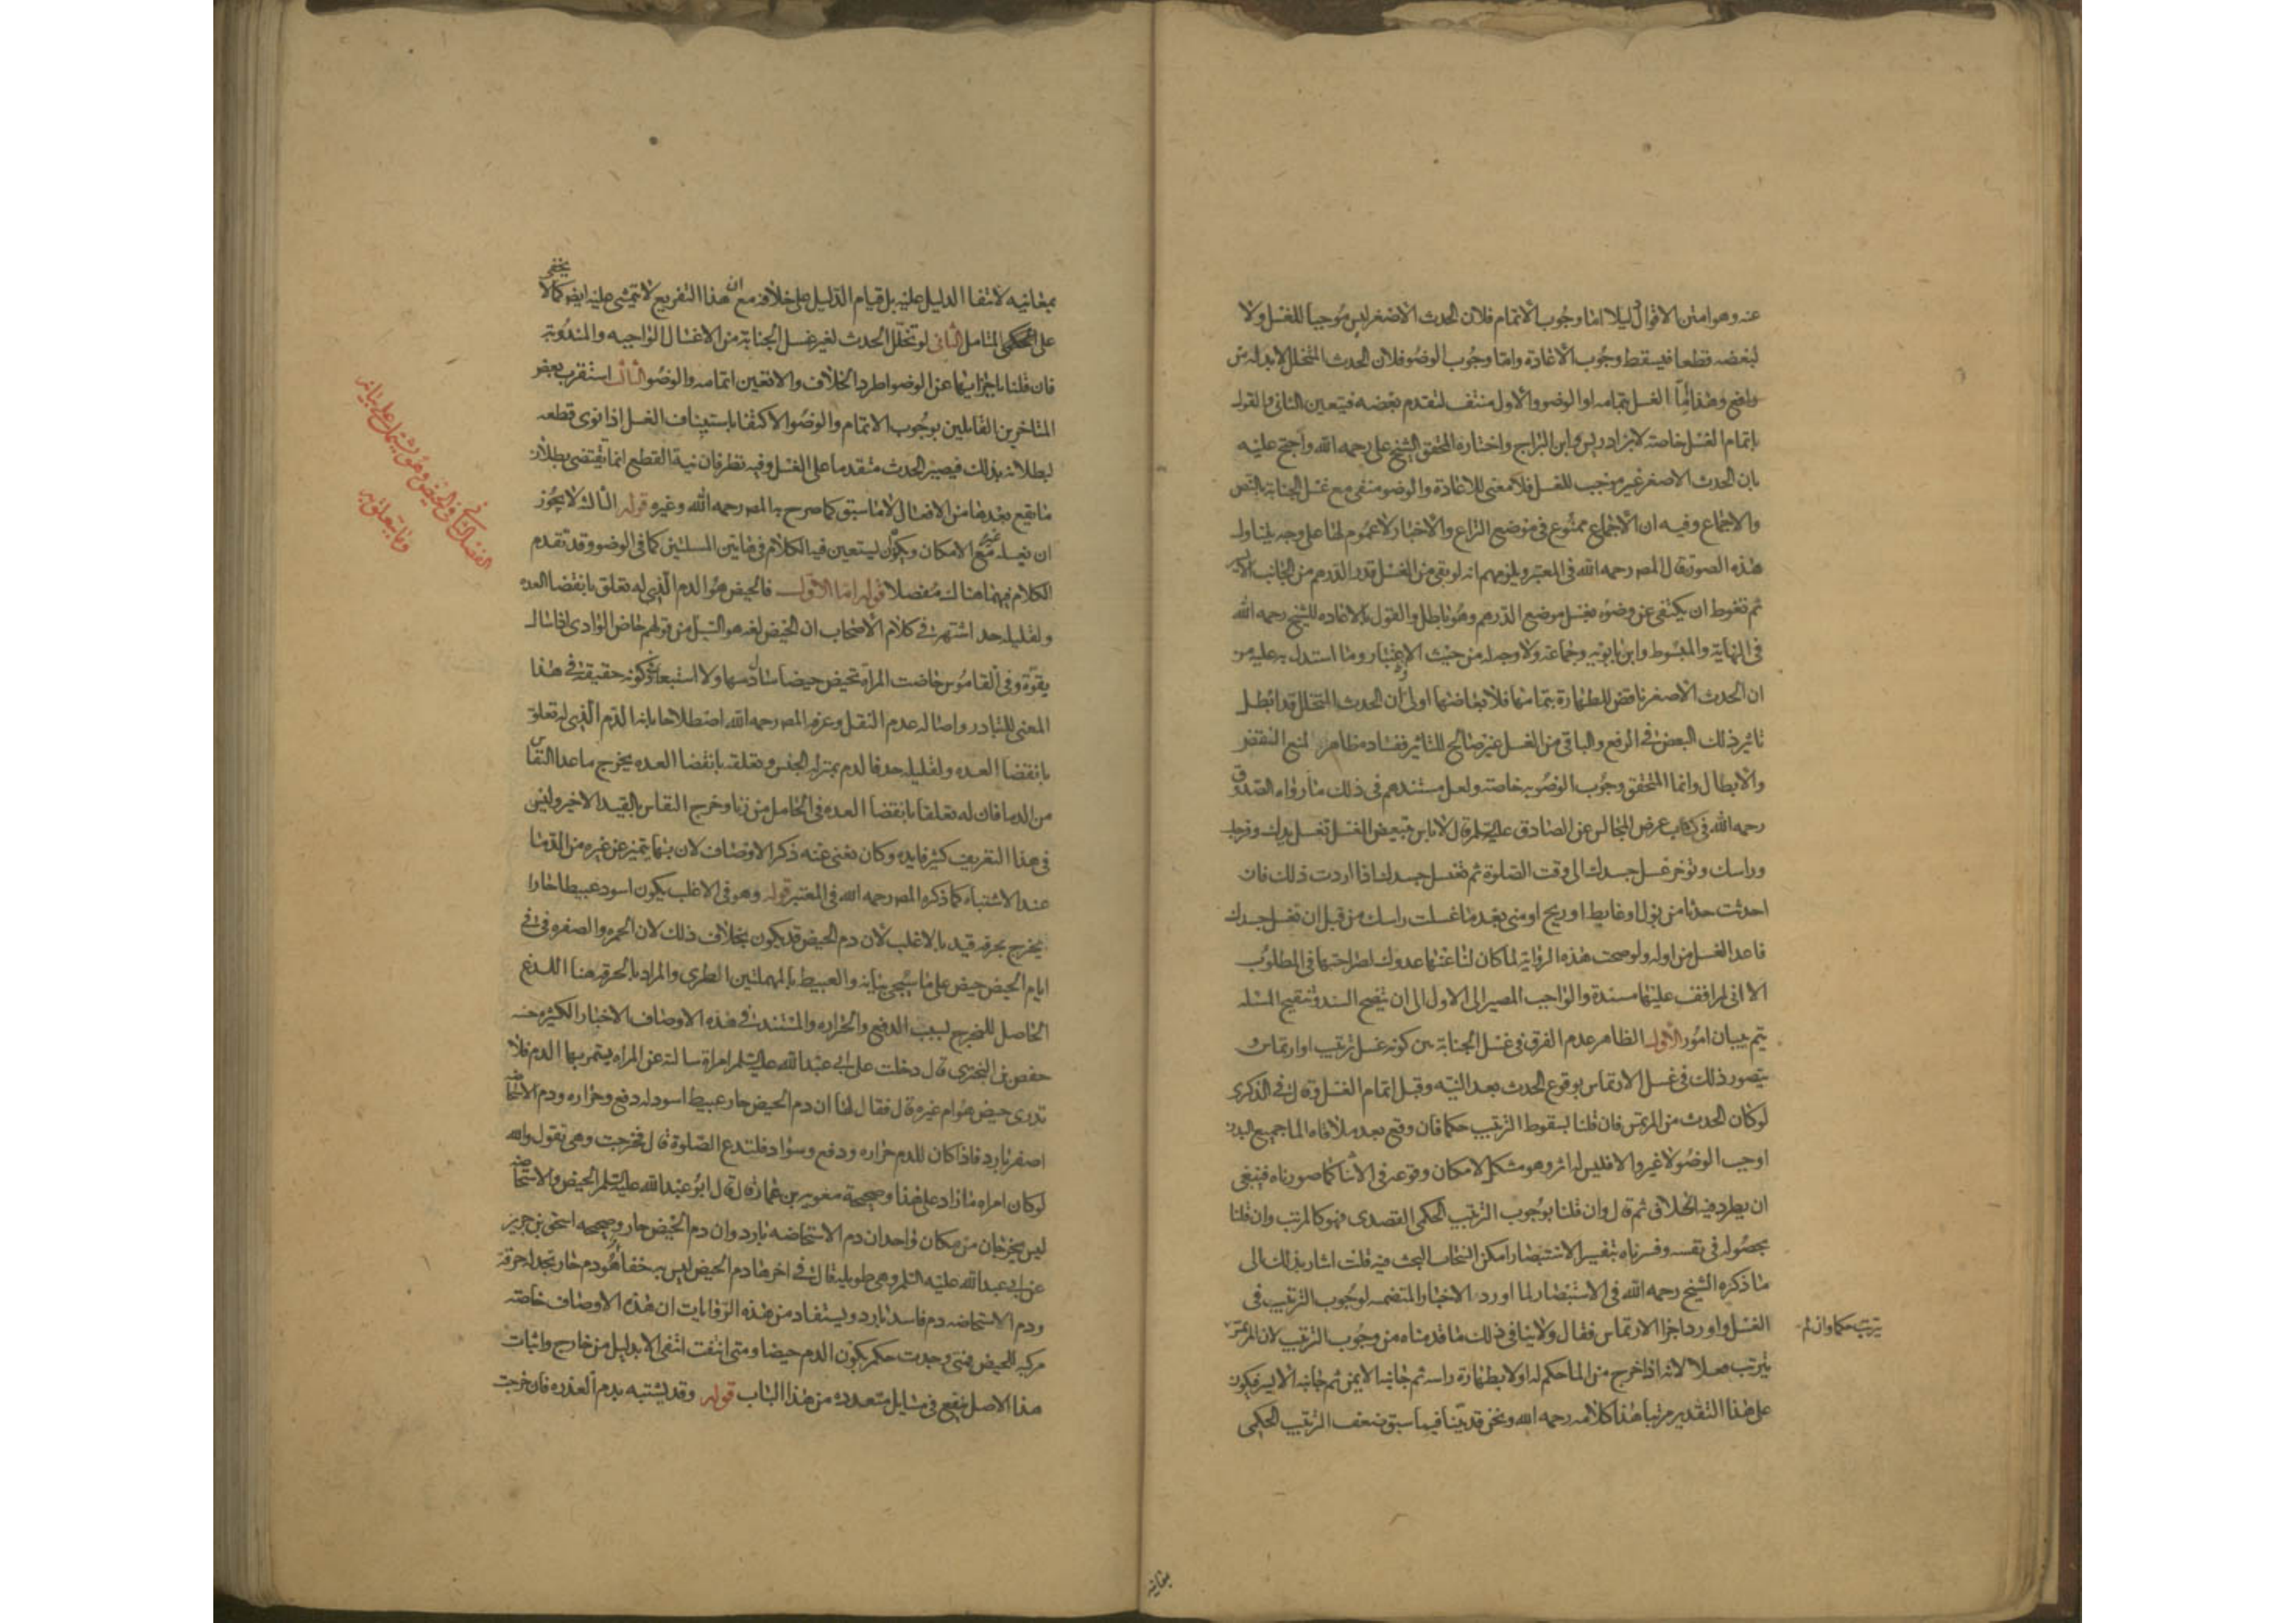 عنه وهو امتن الاقوال دليلا اما وجوب الاتمام فلان الحدث الاصغر ليس موجبا للغسل ولا
لبعضه قطعا فيسقط وجوب الاعادة واما وجوب الوضو فلان الحدث المتخلل لا بد له من
رافع وهو اما الغسل بتمامه او الوضو والاول منتف لتقدم بعضه فيتعين الثاني والقول
باتمام الغسل خاصة لابن ادريس وابن البراج واختاره المحقق الشيخ على رحمه الله واحتج عليه
بان الحدث الاصغر غير موجب للغسل فلا معنى للاعادة والوضو منفى مع غسل الجنابة بالنص
والاجماع وفيه ان الاجماع ممنوع في موضع النزاع والاخبار لا عموم لها على وجه يتناول
هذه الصورة قال المصـ رحمه الله في المعتبر ويلزمهم انه لو بقى من الغسل قدر الدرهم من الجانب الايسر
ثم تغوط ان يكتفى عن وضوه بغسل موضع الدرهم وهو باطل والقول بالاعاده للشيخ رحمه الله
في النهاية والمبسوط وابن بابويه وجماعة ولا وجه له من حيث الاعتبار وما استدل به عليه من
ان الحدث الاصغر ناقض للطهارة بتمامها فلابعاضها اولى وان الحدث المتخلل قد ابطل
تاثير ذلك البعض في الرفع والباقى من الغسل غير صالح للتاثير ففساده ظاهر لمنع النقض
والابطال وانما المتحقق وجوب الوضو به خاصة ولعل مستندهم في ذلك ما رواه الصدوق
رحمه الله في كتاب عرض المجالس عن الصادق عليه السلم قال لا باس بتبعيض الغسل تغسل يدك وفرجك
وراسك وتوخر غسل جسدك الى وقت الصلوة ثم تغسل جسدك اذا اردت ذلك فان
احدثت حدثا من بول او غايط او ريح او منى بعد ما غسلت راسك من قبل ان تغسل جسدك
فاعد الغسل من اوله ولو صحت هذه الرواية لما كان لنا عنها عدول لصراحتها في المطلوب
الا انى لم اقف عليها مسندة والواجب المصير الى الاول الى ان يتضح السند وتنقيح المسله
يتم ببيان امور الاول الظاهر عدم الفرق في غسل الجنابة بين كونه غسل ترتيب او ارتماس و
يتصور ذلك في غسل الارتماس بوقوع الحدث بعد النيه وقبل اتمام الغسل وقال في الذكرى
لو كان الحدث من المرتمس فان قلنا بسقوط الترتيب حكما فان وقع بعد ملاقاه الما جميع البدن
اوجب الوضو لا غير والا فليس له اثر وهو مشكل لامكان وقوعه في الاثنا كما صورناه فينبغى
ان يطرد فيه الخلاف ثم قال وان قلنا بوجوب الترتيب الحكمى القصدى فهو كالمرتب وان قلنا
بحصوله في نفسه وفسرناه بتفسير الاستبصار امكن انسحاب البحث فيه قلت اشار بذلك الى
ما ذكره الشيخ رحمه الله في الاستبصار لما اورد الاخبار المتضمنه لوجوب الترتيب في
الغسل واورد اجزا الارتماس فقال ولا ينافى ذلك ما قدمناه من وجوب الترتيب لان المرتمس
يترتب حكما وان لم
يترتب فعلا لانه اذا خرج من الما حكم له اولا بطهارة راسه ثم جانبه الايمن ثم جانبه الايسر فيكون
على هذا التقدير مرتبا هذا كلامه رحمه الله ونحن قد بينا فيما سبق ضعف الترتيب الحكمى
بمعانيه
بمعانيه لانتفا الدليل عليه بل قيام الدليل على خلافه مع ان هذا التفريع لا يتمشى عليه ايضا كما لا يخفى
على المتامل الثانى لو تخلل الحدث لغير غسل الجنابة من الاغسال الواجبه والمندوبة
فان قلنا باجزائها عن الوضو اطرد الخلاف والا تعين اتمامه والوضو الثالث استقرب بعض
المتاخرين القايلين بوجوب الاتمام والوضو الاكتفا باستيناف الغسل اذا نوى قطعه
لبطلانه بذلك فيصير الحدث متقدما على الغسل وفيه نظر فان نية القطع انما يقتضى بطلان
ما يقع بعدها من الافعال لا ما سبق كما صرح به المصـ رحمه الله وغيره قوله الثالث لا يجوز
ان يغسله غيره مع الامكان ويكره ان يستعين فيه الكلام في هاتين المسلتين كما في الوضو وقد تقدم
الكلام فيهما هناك مفصلا قوله اما الاول فالحيض هو الدم الذي له تعلق بانقضا العده
ولقليله حد اشتهر في كلام الاصحاب ان الحيض لغة هو السيل من قولهم حاض الوادى اذا سال
بقوة وفي القاموس حاضت المراة تحيض حيضا سال دمها ولا استبعاد في كونه حقيقة في هذا
المعنى للتبادر واصاله عدم النقل وعرفه المصـ رحمه الله اصطلاحا بانه الدم الذي له تعلق
بانقضا العده ولقليله حد فالدم بمنزله الجنس وتعلقه بانقضا العده يخرج ما عدا النفاس
من الدما فان له تعلقا بانقضا العده في الحامل من زنا وخرج النفاس بالقيد الاخير وليس
في هذا التعريف كثير فايده وكان يغنى عنه ذكر الاوصاف لان بها يتميز عن غيره من الدما
عند الاشتباه كما ذكره المصـ رحمه الله في المعتبر قوله وهو في الاغلب يكون اسود عبيطا حارا
يخرج بحرقه قيد بالاغلب لان دم الحيض قد يكون بخلاف ذلك لان الحمره والصفره في
ايام الحيض حيض على ما سيجى بيانه والعبيط بالمهملتين الطرى والمراد بالحرقه هنا اللذع
الحاصل للمخرج بسبب الدفع والحراره والمستند في هذه الاوصاف الاخبار الكثيره حسنه
حفص بن البخترى قال دخلت على ابى عبد الله عليه السلم امراة سالته عن المراه يستمر بها الدم فلا
تدرى حيض هو ام غيره قال فقال لها ان دم الحيض حار عبيط اسود له دفع وحراره ودم الاستحاضه
اصفر بارد فاذا كان للدم حراره ودفع وسواد فلتدع الصلوة قال فخرجت وهي تقول والله
لو كان امراه ما زاد على هذا وصحيحة معويه بن عمار قال قال ابو عبد الله عليه السلم الحيض والاستحاضه
ليس يخرجان من مكان واحد ان دم الاستحاضه بارد وان دم الحيض حار وصحيحه اسحق بن جرير
عن ابى عبد الله عليه السلم وهي طويله قال في اخرها دم الحيض ليس به خفا هو دم حار تجد له حرقة
ودم الاستحاضه دم فاسد بارد ويستفاد من هذه الروايات ان هذه الاوصاف خاصه
مركبه للحيض فمتى وجدت حكم بكون الدم حيضا ومتى انتفت انتفى الا بدليل من خارج واثبات
هذا الاصل ينفع في مسايل متعدده من هذا الباب قوله وقد يشتبه بدم العذره فان خرجت
الفصل الثانى في الحيض وهو يشتمل على بيانه
وما يتعلق به